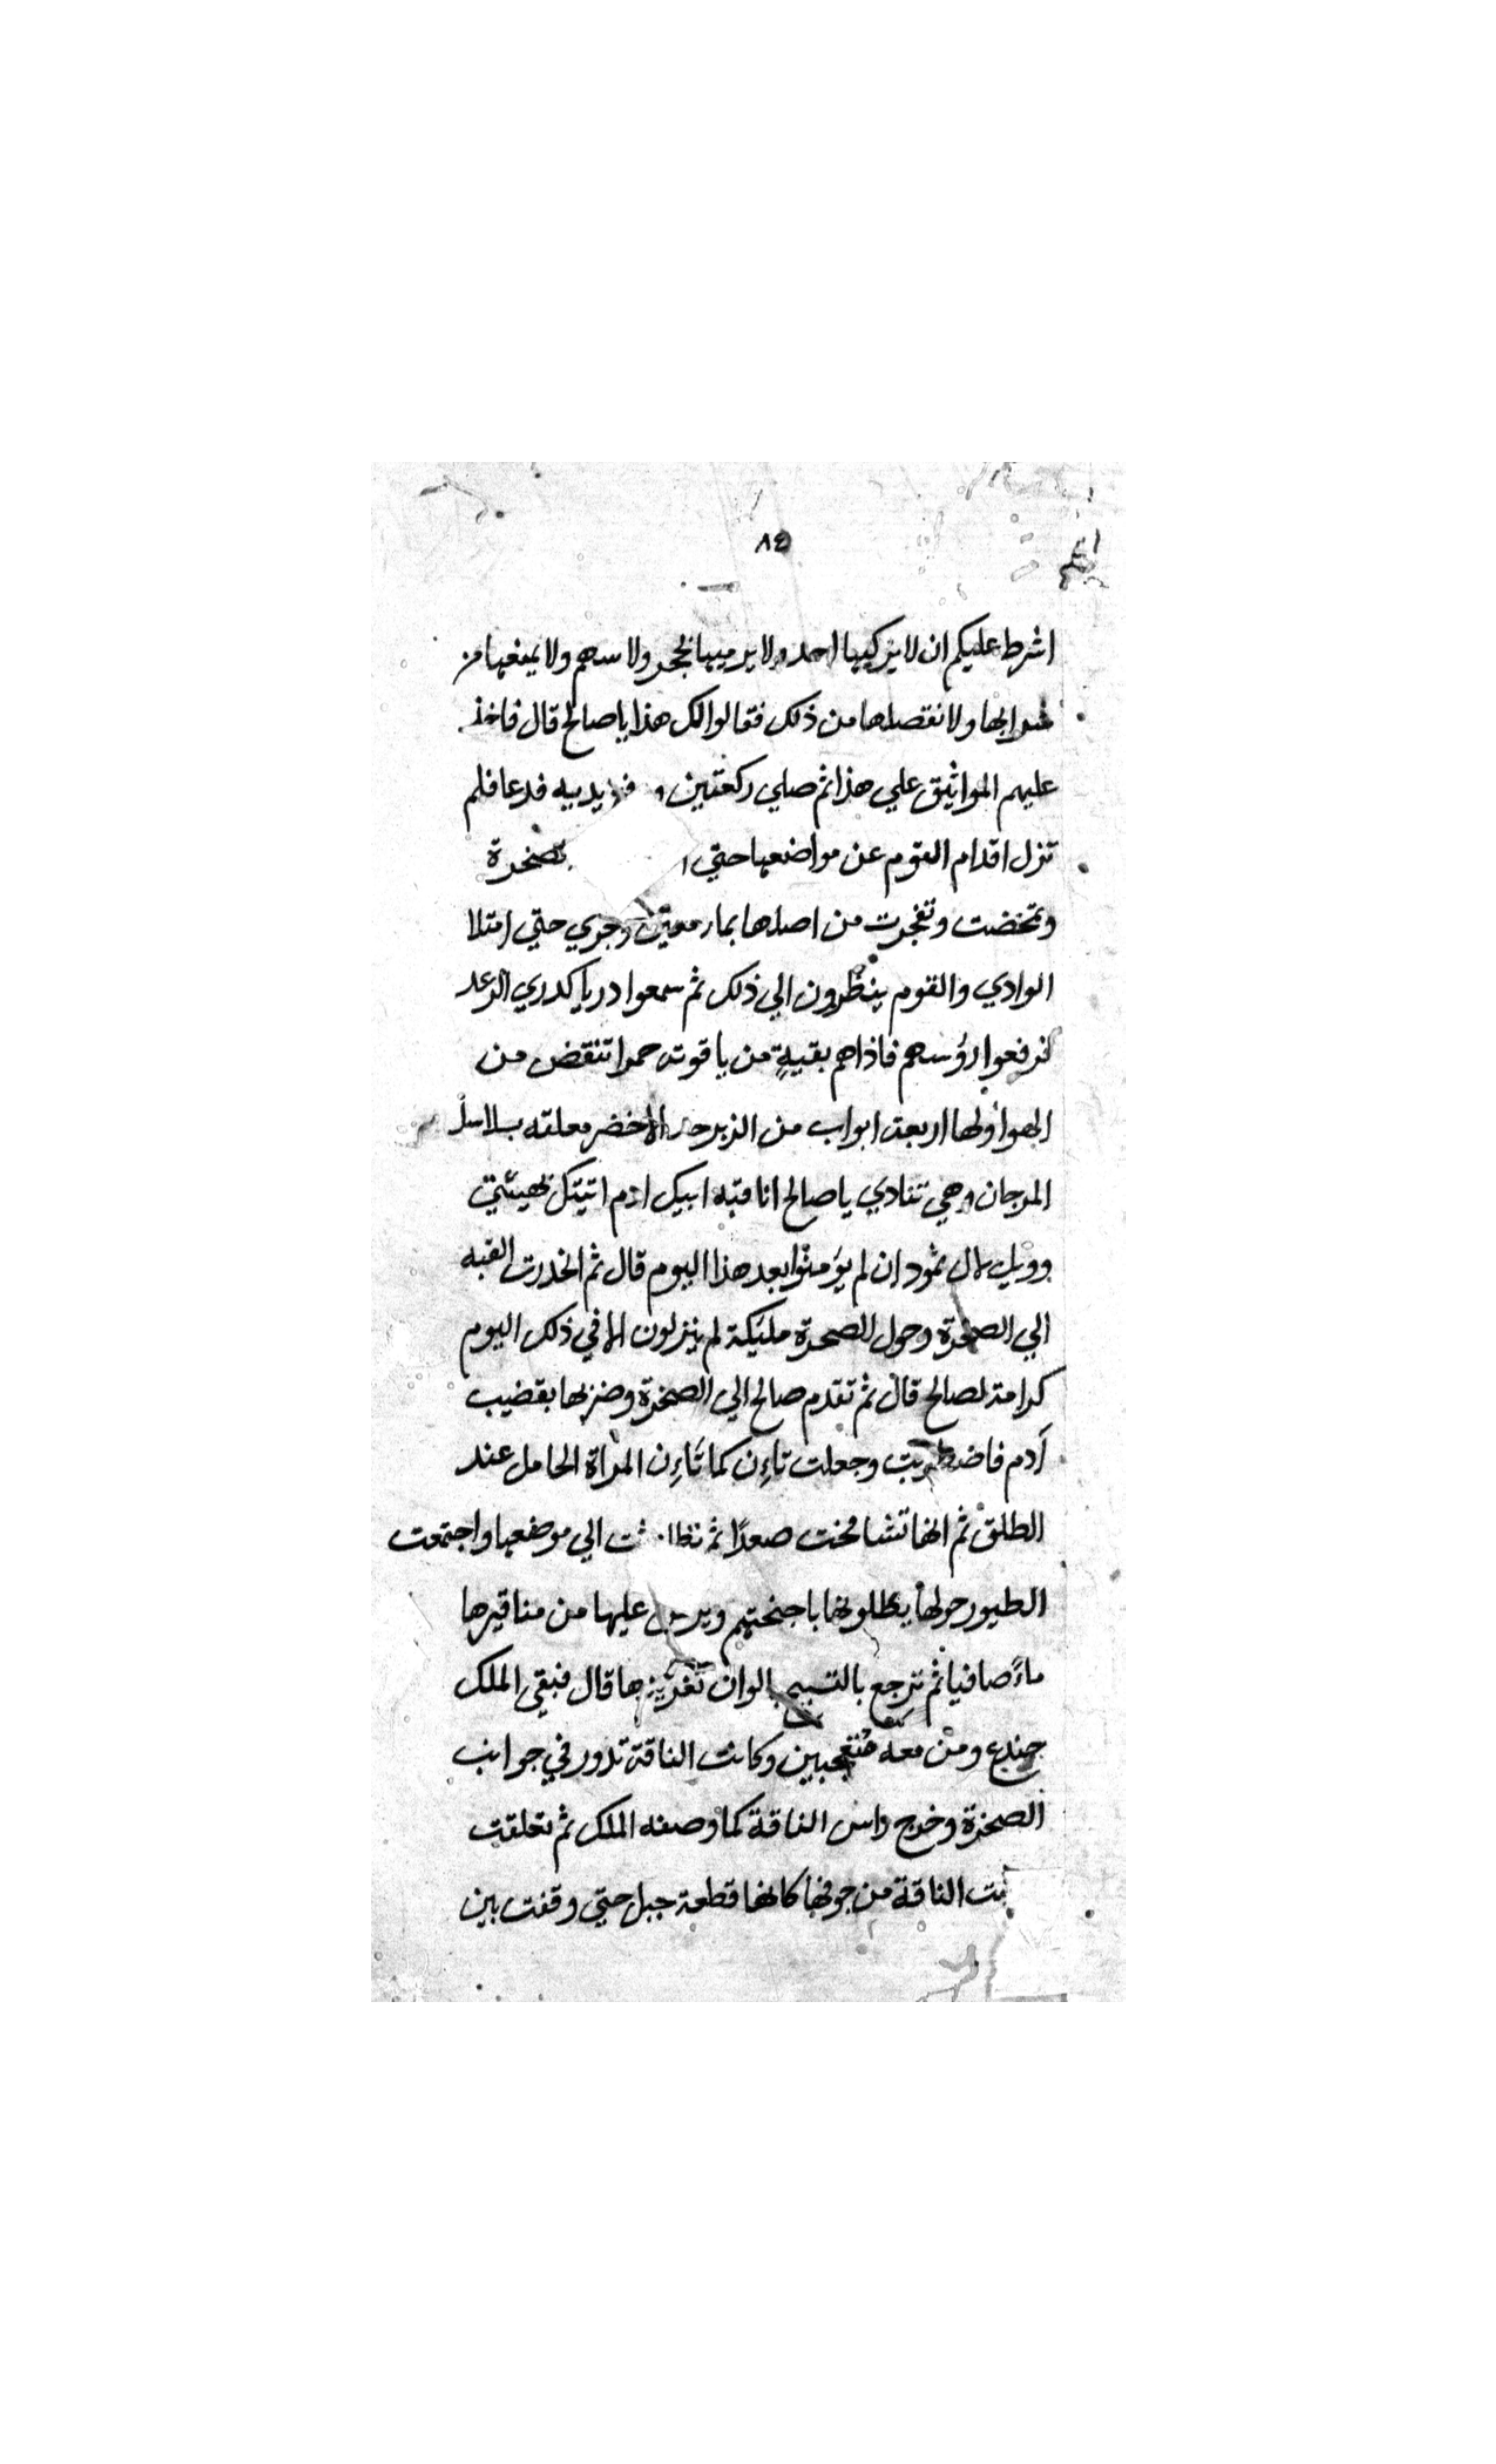 ٨٤
اشرط عليكم ان لا يركبها احد ولا يرميها بحجر ولا سهم ولا يمنعها من
شرابها ولا نقصلها من ذلك فقالوا لك هذا يا صالح قال فاخذ
عليهم المواثيق علي هذا ثم صلي ركعتين يديه فدعا فلم
تزل اقدام القوم عن مواضعها حتي
وتمخضت وتفجرت من اصلها بماء معين وجري حتي امتلا
الوادي والقوم ينظرون الي ذلك ثم سمعوا دريا كدري الرعد
فرفعوا رؤسهم فاذاهم بقبة من ياقوته حمرا تنقض من
الهوا ولها اربعة ابواب من الزبرجد الاخضر معلقه بسلاسل
المرجان وهي تنادي يا صالح انا قبه ابيك ادم اتيتك بهيئتي
وويل لال ثمود ان لم يؤمنوا بعد هذا اليوم قال ثم انحدرت القبه
الي الصخرة وحول الصخرة مليكة لم ينزلون الا في ذلك اليوم
كرامة لصالح قال ثم تقدم صالح الي الصخرة وضربها بقضيب
آدم فاضطربت وجعلت تاءن كما تاءن المراة الحامل عند
الطلق ثم انها تشامخت صعدًا ثم الي موضعها واجتمعت
الطيور حولها يظلونها باجنحتهم عليها من مناقيرها
ماءً صافيا ثم ترجع بالتسبيح بالوان تغريزها قال فبقي الملك
جندع ومن معه متعجبين وكانت الناقة تدور في جوانب
الصخرة وخرج راس الناقة كما وصفه الملك ثم تعلقت
الناقة من جوفها كانها قطعة جبل حتي وقفت بين